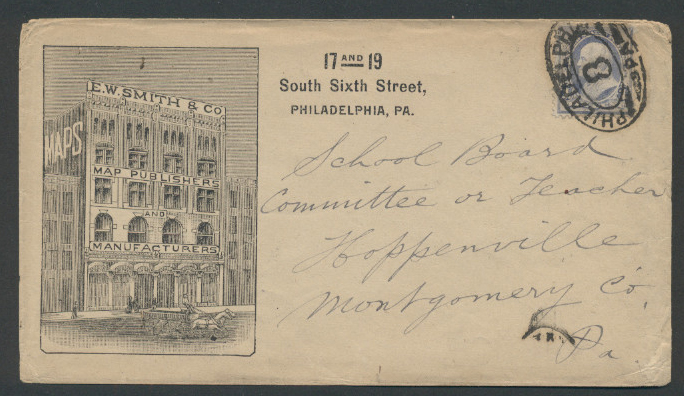 E.W. SMITH & CO
MAPS
MAP PUBLISHERS
AND
MANUFACTURERS
17 AND 19
South Sixth Street,
PHILADELPHIA, PA.
PHILADELPHIA PA
8
School Board
Committee or Teacher
Hoppenville
Montgomery Co.
Pa.